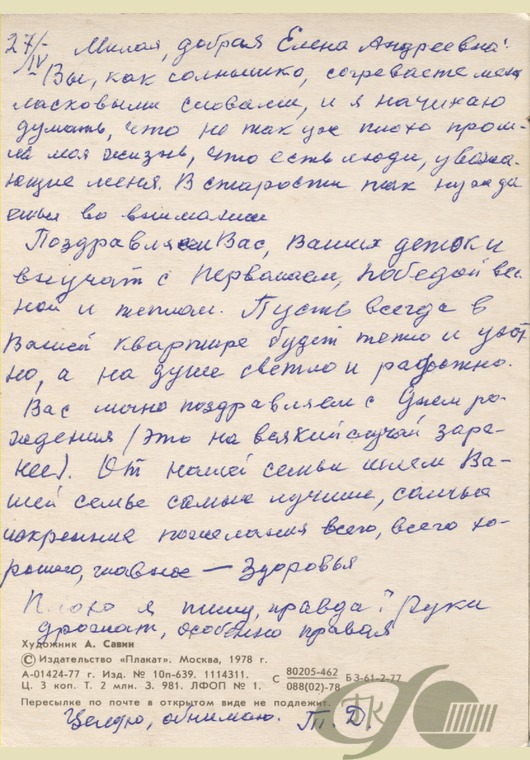 27/IV Милая, добрая Елена Андреевна!
Вы, как солнышко, согреваете меня
ласковыми словами, и я начинаю
думать, что не так уж плохо прош-
ла моя жизнь, что есть люди, уважа-
ющие меня. В старости так нужда
ешься во внимании
Поздравляем Вас, Ваших деток и
внучат с Первомаем, Победой вес
ной и теплом. Пусть всегда в
Вашей квартире будет тепло и уют
но, а на душе светло и радостно.
Вас лично поздравляем с Днем ро-
ждения (это на всякий случай зара-
нее). От нашей семьи шлем Ва-
шей семье самые лучшие, самые
искренние пожелания всего, всего хо-
рошего, главное — Здоровья
Плохо я пишу, правда? Руки
дрожат, особенно правая
Художник А. Савин
© Издательство «Плакат». Москва, 1978 г.
А-01424-77 г. Изд. № 10п-639. 1114311. С 80205-462 БЗ-61-2-77
Ц. 3 коп. Т. 2 млн. З. 981. ЛФОП № 1. 088(02)-78
Пересылке по почте в открытом виде не подлежит.
Целую, обнимаю. Т. Д.